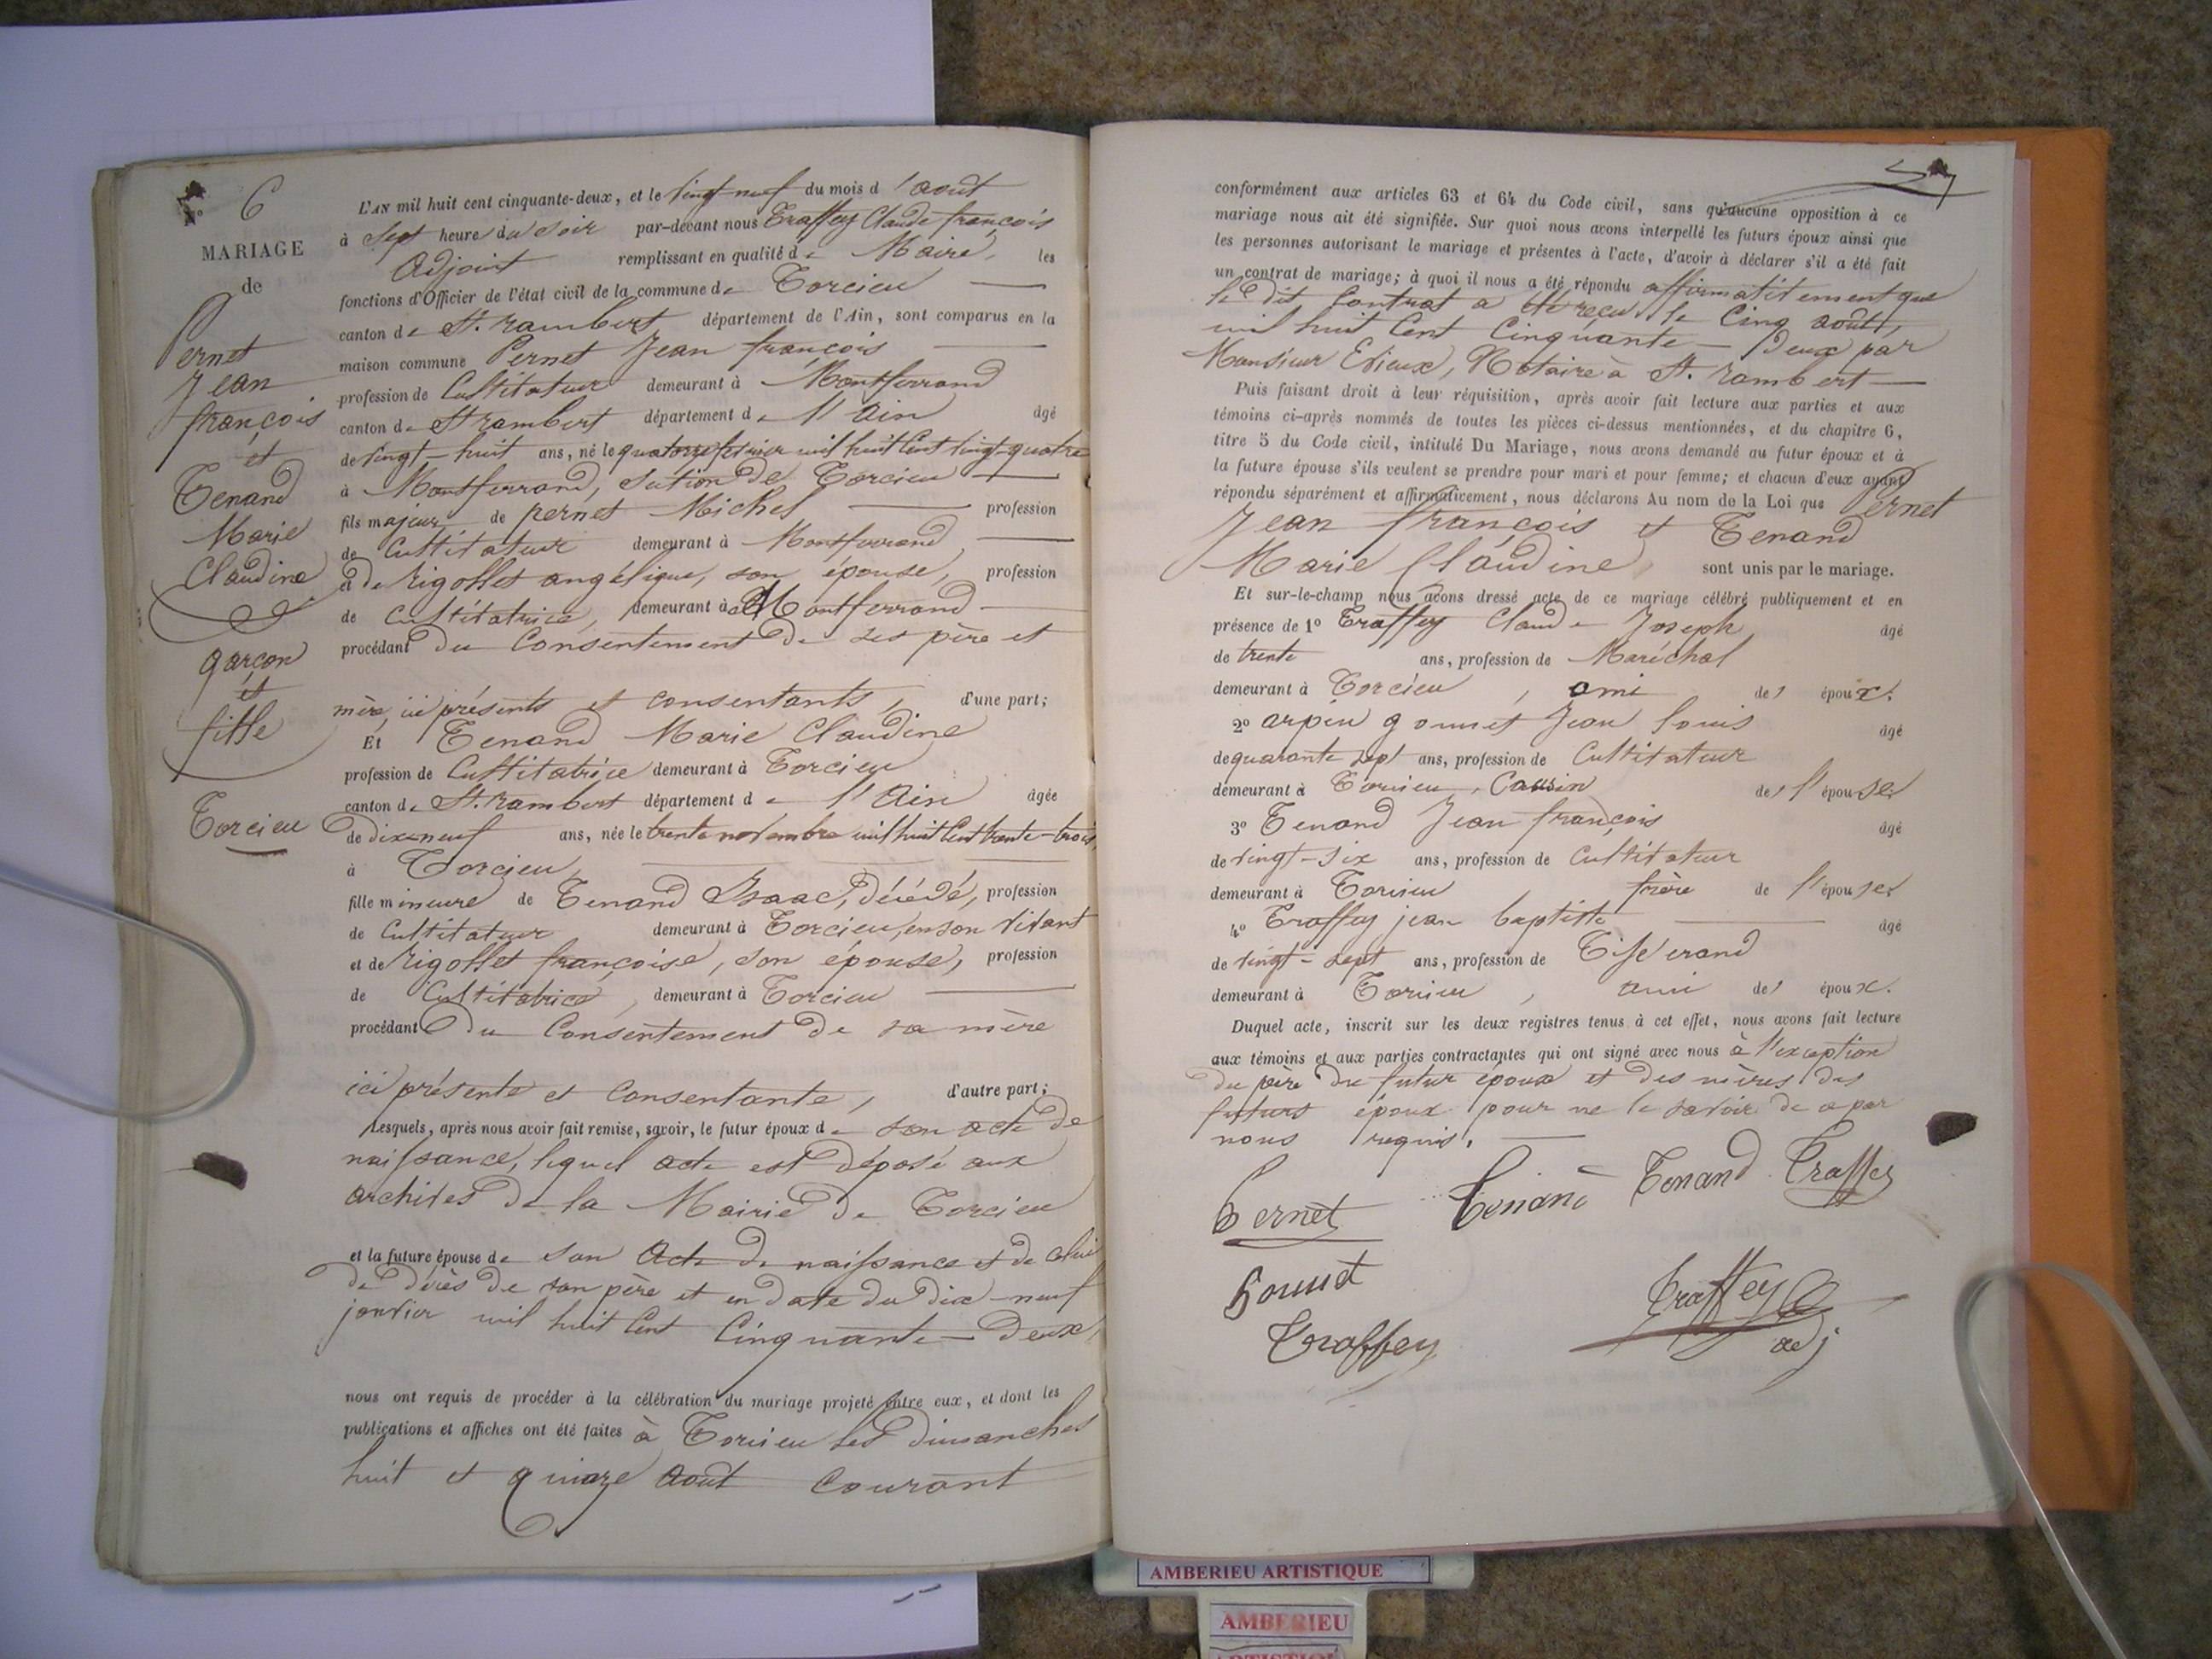 N° 6
MARIAGE
de
Pernet
Jean
françois
et
Tenand
Marie
Claudine
garçon
et
fille
Torcieu
L'AN mil huit cent cinquante-deux, et le vingt neuf du mois d'août
à sept heure du soir par-devant nous Traffey Claude françois
Adjoint remplissant en qualité de Maire, les
fonctions d'Officier de l'état civil de la commune de Torcieu
canton de St. rambert département de l'Ain, sont comparus en la
maison commune Pernet Jean françois
profession de Cultivateur demeurant à Montferrand
canton de St rambert département de l'Ain âgé
de vingt-huit ans, né le quatorze février mil huit Cent vingt-quatre
à Montferrand, Section de Torcieu
fils majeur de pernet Michel profession
de Cultivateur demeurant à Montferrand,
et de Rigollet angélique, son épouse, profession
de Cultivatrice, demeurant à Montferrand
procédant du Consentement de ses père et
mère, ici présents et consentants, d'une part;
Et Tenand Marie Claudine
profession de Cultivatrice demeurant à Torcieu
canton de St. rambert département de l'Ain âgée
de dix-neuf ans, née le trente novembre mil huit Cent trente-trois
à Torcieu,
fille mineure de Tenand Isaac, décédé, profession
de Cultivateur demeurant à Torcieu, en son vivant
et de Rigollet françoise, son épouse, profession
de Cultivatrice, demeurant à Torcieu
procédant du Consentement de sa mère
ici présente et Consentante, d'autre part;
Lesquels, après nous avoir fait remise, savoir, le futur époux de son acte de
naissance, lequel acte est déposé aux
archives de la Mairie de Torcieu
et la future épouse de son Acte de naissance et de celui
de décès de son père et en date du dix-neuf
janvier mil huit Cent Cinquante-deux,
nous ont requis de procéder à la célébration du mariage projeté entre eux, et dont les
publications et affiches ont été faites à Torcieu les dimanches
huit et quinze Août Courant
conformément aux articles 63 et 64 du Code civil, sans qu'aucune opposition à ce
mariage nous ait été signifiée. Sur quoi nous avons interpellé les futurs époux ainsi que
les personnes autorisant le mariage et présentes à l'acte, d'avoir à déclarer s'il a été fait
un contrat de mariage; à quoi il nous a été répondu affirmativement que
le dit Contrat a été reçu le Cinq août,
mil huit Cent Cinquante-deux par
Monsieur Evieux, Notaire à St. rambert
Puis faisant droit à leur réquisition, après avoir fait lecture aux parties et aux
témoins ci-après nommés de toutes les pièces ci-dessus mentionnées, et du chapitre 6,
titre 5 du Code civil, intitulé Du Mariage, nous avons demandé au futur époux et à
la future épouse s'ils veulent se prendre pour mari et pour femme; et chacun d'eux ayant
répondu séparément et affirmativement, nous déclarons Au nom de la Loi que Pernet
Jean françois et Tenand
Marie Claudine sont unis par le mariage.
Et sur-le-champ nous avons dressé acte de ce mariage célébré publiquement et en
présence de 1° Traffey Claude Joseph âgé
de trente ans, profession de Maréchal
demeurant à Torcieu, ami des époux.
2° arpin gonnet Jean louis âgé
de quarante sept ans, profession de Cultivateur
demeurant à Torcieu, Cousin de l'épouse
3° Tenand Jean françois âgé
de vingt-six ans, profession de Cultivateur
demeurant à Torcieu frère de l'épouse
4° Traffey jean baptiste âgé
de vingt-sept ans, profession de Tisserand
demeurant à Torcieu, ami des époux.
Duquel acte, inscrit sur les deux registres tenus à cet effet, nous avons fait lecture
aux témoins et aux parties contractantes qui ont signé avec nous à l'exception
du père du futur époux et des mères des
futurs époux pour ne le savoir de a par
nous requis.
Pernet Tenand Tenand Traffey
Gonnet Traffey
Traffey adj
AMBERIEU ARTISTIQUE
AMBERIEU
ARTISTIQUE